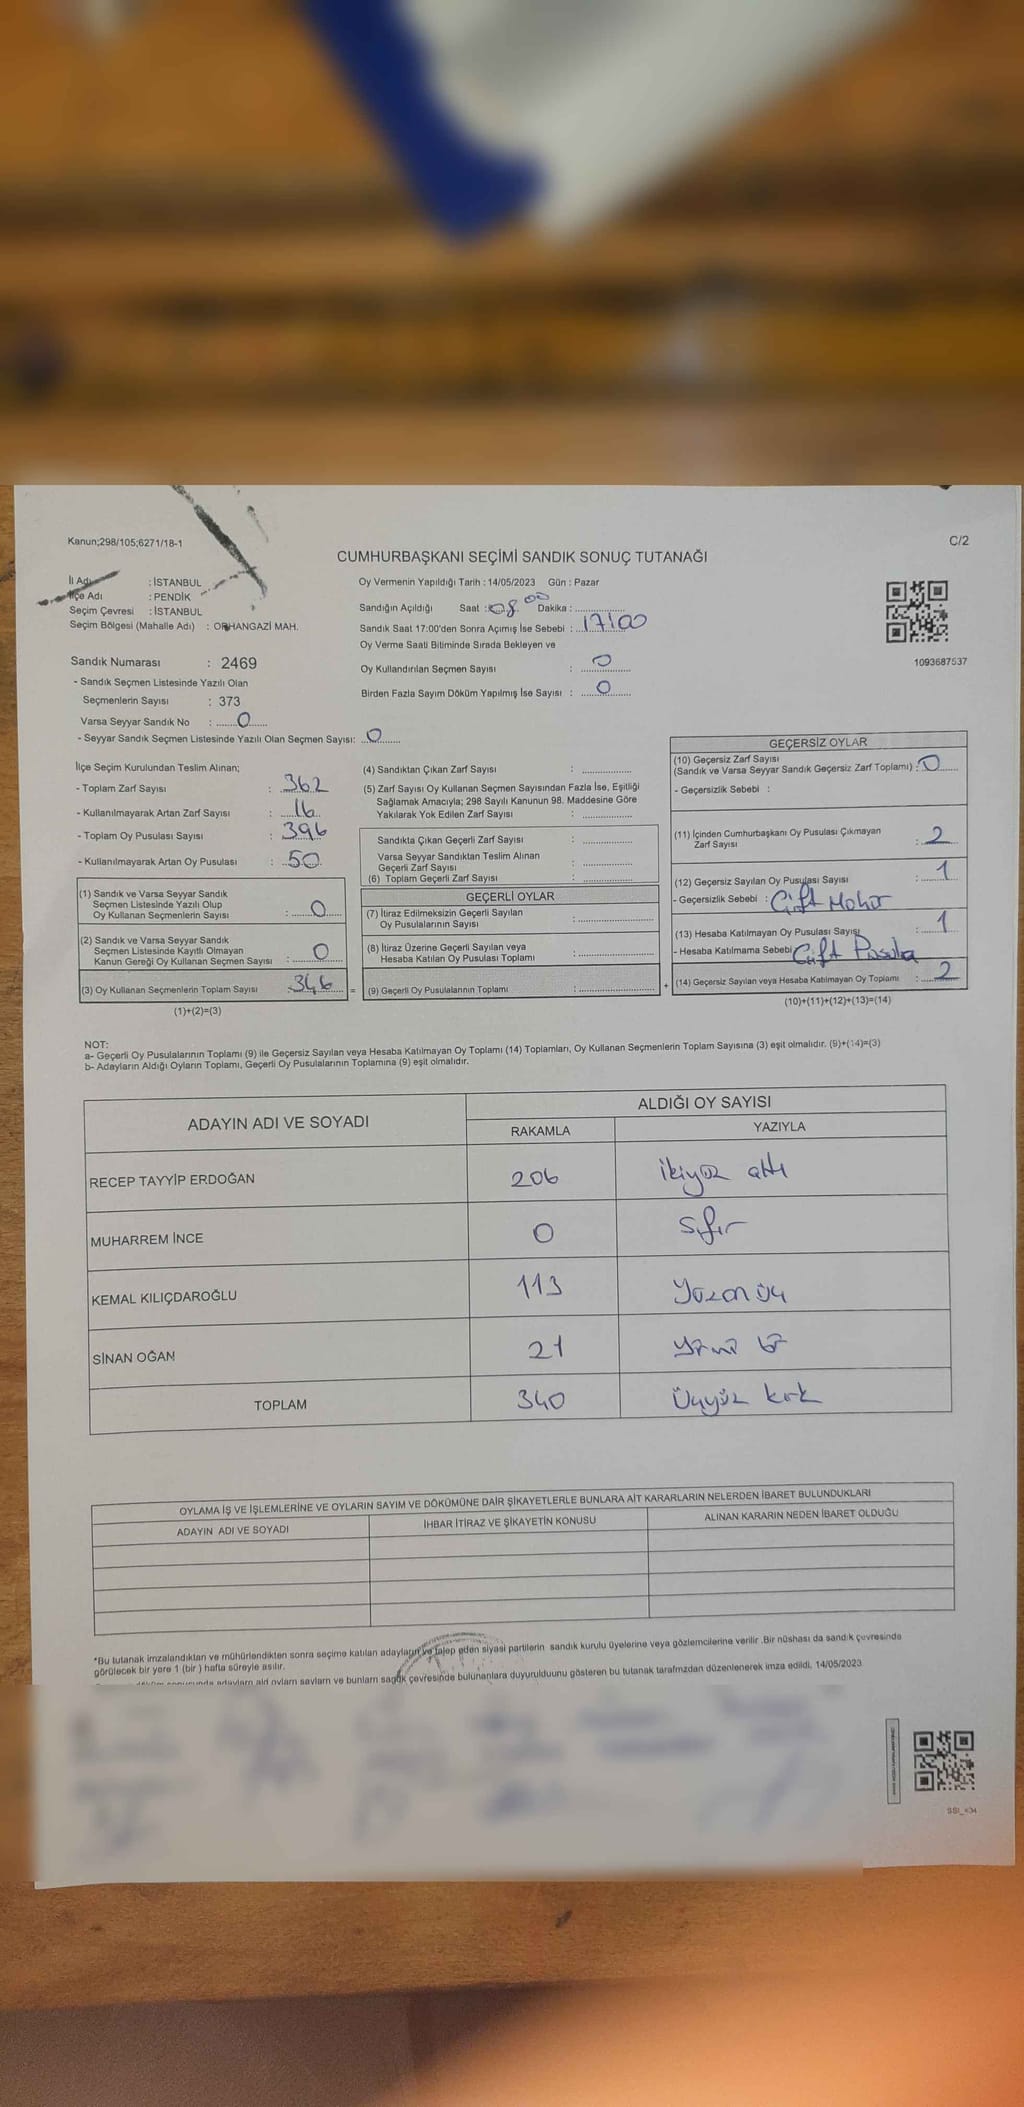 Kanun;298/105;6271/18-1
C/2
CUMHURBAŞKANI SEÇİMİ SANDIK SONUÇ TUTANAĞI
İl Adı : İSTANBUL
İlçe Adı : PENDİK
Seçim Çevresi : İSTANBUL
Seçim Bölgesi (Mahalle Adı) : ORHANGAZİ MAH.
Oy Vermenin Yapıldığı Tarih : 14/05/2023 Gün : Pazar
Sandığın Açıldığı Saat : 08 00 Dakika :
Sandık Saat 17:00'den Sonra Açımış İse Sebebi : 17:00
Oy Verme Saati Bitiminde Sırada Bekleyen ve
Oy Kullandırılan Seçmen Sayısı : 0
Birden Fazla Sayım Döküm Yapılmış İse Sayısı : 0
1093687537
Sandık Numarası : 2469
- Sandık Seçmen Listesinde Yazılı Olan
Seçmenlerin Sayısı : 373
Varsa Seyyar Sandık No : 0
- Seyyar Sandık Seçmen Listesinde Yazılı Olan Seçmen Sayısı: 0
İlçe Seçim Kurulundan Teslim Alınan;
- Toplam Zarf Sayısı : 362
- Kullanılmayarak Artan Zarf Sayısı : 16
- Toplam Oy Pusulası Sayısı : 396
- Kullanılmayarak Artan Oy Pusulası : 50
(1) Sandık ve Varsa Seyyar Sandık
Seçmen Listesinde Yazılı Olup
Oy Kullanan Seçmenlerin Sayısı : 0
(2) Sandık ve Varsa Seyyar Sandık
Seçmen Listesinde Kayıtlı Olmayan
Kanun Gereği Oy Kullanan Seçmen Sayısı : 0
(3) Oy Kullanan Seçmenlerin Toplam Sayısı : 346 =
(1)+(2)=(3)
(4) Sandıktan Çıkan Zarf Sayısı :
(5) Zarf Sayısı Oy Kullanan Seçmen Sayısından Fazla İse, Eşitliği
Sağlamak Amacıyla; 298 Sayılı Kanunun 98. Maddesine Göre
Yakılarak Yok Edilen Zarf Sayısı :
Sandıkta Çıkan Geçerli Zarf Sayısı :
Varsa Seyyar Sandıktan Teslim Alınan
Geçerli Zarf Sayısı :
(6) Toplam Geçerli Zarf Sayısı :
GEÇERLİ OYLAR
(7) İtiraz Edilmeksizin Geçerli Sayılan
Oy Pusulalarının Sayısı :
(8) İtiraz Üzerine Geçerli Sayılan veya
Hesaba Katılan Oy Pusulası Toplamı :
(9) Geçerli Oy Pusulalarının Toplamı : +
GEÇERSİZ OYLAR
(10) Geçersiz Zarf Sayısı
(Sandık ve Varsa Seyyar Sandık Geçersiz Zarf Toplamı) : 0
- Geçersizlik Sebebi :
(11) İçinden Cumhurbaşkanı Oy Pusulası Çıkmayan
Zarf Sayısı : 2
(12) Geçersiz Sayılan Oy Pusulası Sayısı : 1
- Geçersizlik Sebebi : Çift Mohör
(13) Hesaba Katılmayan Oy Pusulası Sayısı : 1
- Hesaba Katılmama Sebebi Çift Pusula
(14) Geçersiz Sayılan veya Hesaba Katılmayan Oy Toplamı : 2
(10)+(11)+(12)+(13)=(14)
NOT:
a- Geçerli Oy Pusulalarının Toplamı (9) ile Geçersiz Sayılan veya Hesaba Katılmayan Oy Toplamı (14) Toplamları, Oy Kullanan Seçmenlerin Toplam Sayısına (3) eşit olmalıdır. (9)+(14)=(3)
b- Adayların Aldığı Oyların Toplamı, Geçerli Oy Pusulalarının Toplamına (9) eşit olmalıdır.
ADAYIN ADI VE SOYADI ALDIĞI OY SAYISI
RAKAMLA YAZIYLA
RECEP TAYYİP ERDOĞAN 206 ikiyüz altı
MUHARREM İNCE 0 sıfır
KEMAL KILIÇDAROĞLU 113 Yüzonüç
SİNAN OĞAN 21 yirmi bir
TOPLAM 340 Üçyüz kırk
OYLAMA İŞ VE İŞLEMLERİNE VE OYLARIN SAYIM VE DÖKÜMÜNE DAİR ŞİKAYETLERLE BUNLARA AİT KARARLARIN NELERDEN İBARET BULUNDUKLARI
ADAYIN ADI VE SOYADI İHBAR İTİRAZ VE ŞİKAYETİN KONUSU ALINAN KARARIN NEDEN İBARET OLDUĞU
*Bu tutanak imzalandıktan ve mühürlendikten sonra seçime katılan adayların ve talep eden siyasi partilerin sandık kurulu üyelerine veya gözlemcilerine verilir .Bir nüshası da sandık çevresinde
görülecek bir yere 1 (bir ) hafta süreyle asılır.
ve bunların sandık çevresinde bulunanlara duyurulduunu gösteren bu tutanak tarafmzdan düzenlenerek imza edildi. 14/05/2023